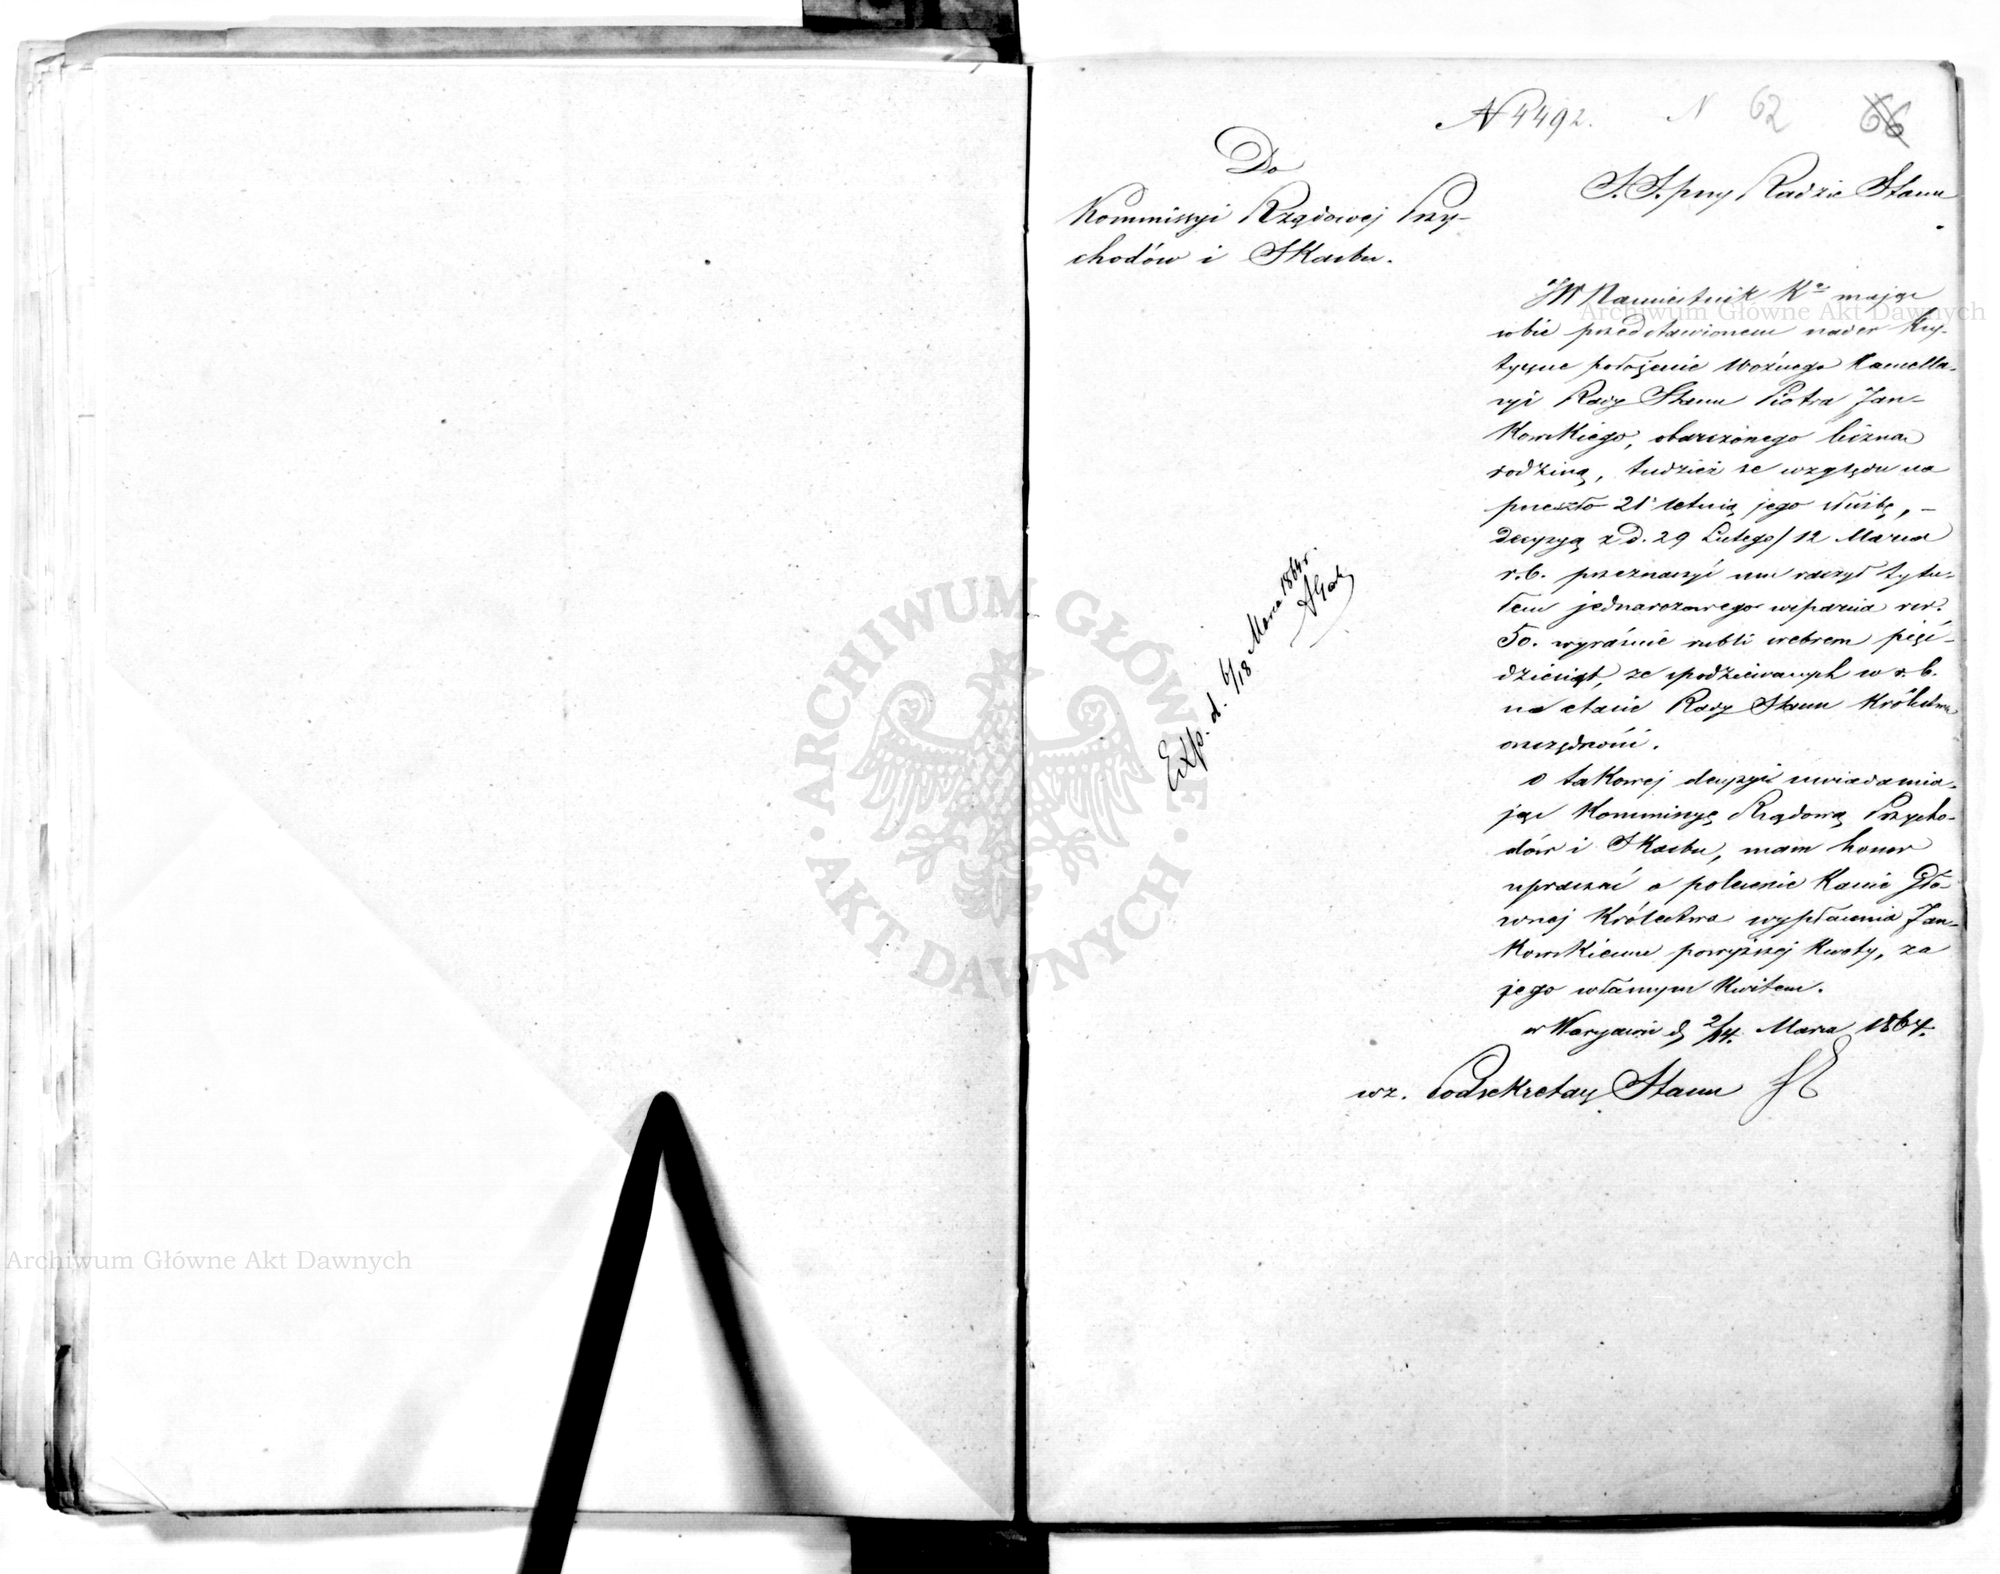 N 4492. N 62 66
Do
Kommissyi Rządowej Przy-
chodów i Skarbu.
S. S. przy Radzie Stanu
JW Namiestnik Kr. mając
sobie przedstawionem nader kry-
tyczne położenie Woźnego Kancella-
ryi Rady Stanu Piotra Jan-
kowskiego, obarczonego liczną
rodziną, tudzież ze względu na
przeszło 21 letnią jego służbę, -
decyzyą z d. 29 Lutego/12 Marca
r.b. przeznaczyć mu raczył tytu-
łem jednorazowego wsparcia rsr.
50. wyraźnie rubli srebrem pięć-
dziesiąt, ze spodziewanych w r.b.
na etacie Rady Stanu Królestwa
oszczędności.
O takowej decyzyi uwiadamia-
jąc Kommissyę Rządową Przycho-
dów i Skarbu, mam honor
upraszać o polecenie Kassie Głó-
wnej Królestwa wypłacenia Jan-
kowskiemu powyższej kwoty, za
jego własnym kwitem.
w Warszawie d. 2/14. Marca 1864.
wz. Podsekretarz Stanu
Exp. d. 6/18 Marca 1864 r.
ARCHIWUM GŁÓWNE
AKT DAWNYCH
Archiwum Główne Akt Dawnych
Archiwum Główne Akt Dawnych